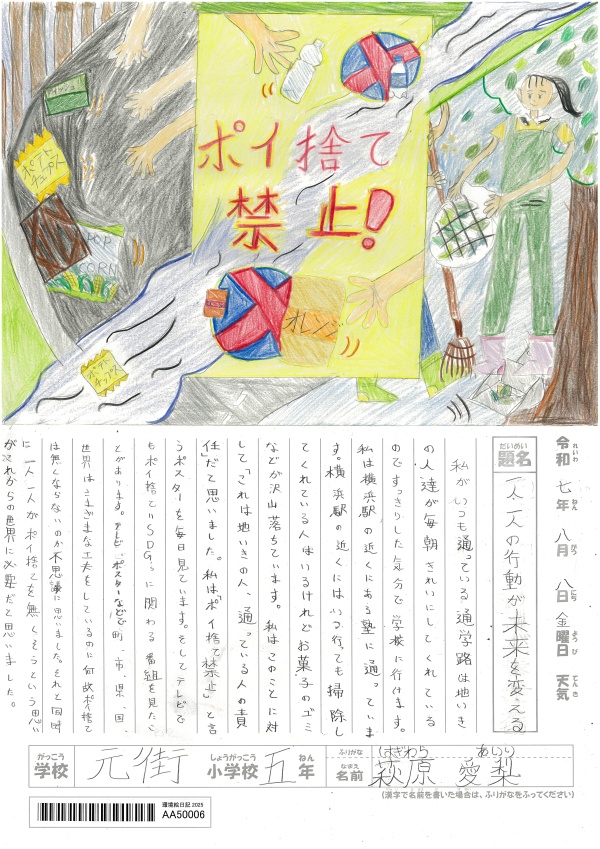 イッシュ
ポテト
チップス
POP
CORN
ポテト
チップス
ポイ捨て
禁止!
オレンジ
令和 七年 八月 八日 金曜日 天気
れいわ ねん がつ にち ようび てんき
だいめい
題名
一人一人の行動が未来を変える
私がいつも通っている通学路は地いき
の人達が毎朝きれいにしてくれている
のですっきりした気分で学校に行けます。
私は横浜駅の近くにある塾に通っていま
す。横浜駅の近くにはいつ行っても掃除し
てくれている人はいるけれどお菓子のゴミ
などが沢山落ちています。私はこのことに対
して「これは地いきの人、通っている人の責
任」だと思いました。私は「ポイ捨て禁止」と言
うポスターを毎日見ています。そしてテレビで
もポイ捨てやSDGsに関わる番組を見たこ
とがあります。テレビ、ポスターなどで町、市、県、国
世界はさまざまな工夫をしているのに何故ポイ捨て
は無くならないのか不思議に思いました。それと同時
に一人一人がポイ捨てを無くそうという思い
がこれからの世界に必要だと思いました。
がっこう しょうがっこう ねん
学校 元街 小学校 五年
ふりがな はぎわら あいり
なまえ
名前 萩原 愛梨
(漢字で名前を書いた場合は、ふりがなをふってください)
環境絵日記 2025
AA50006